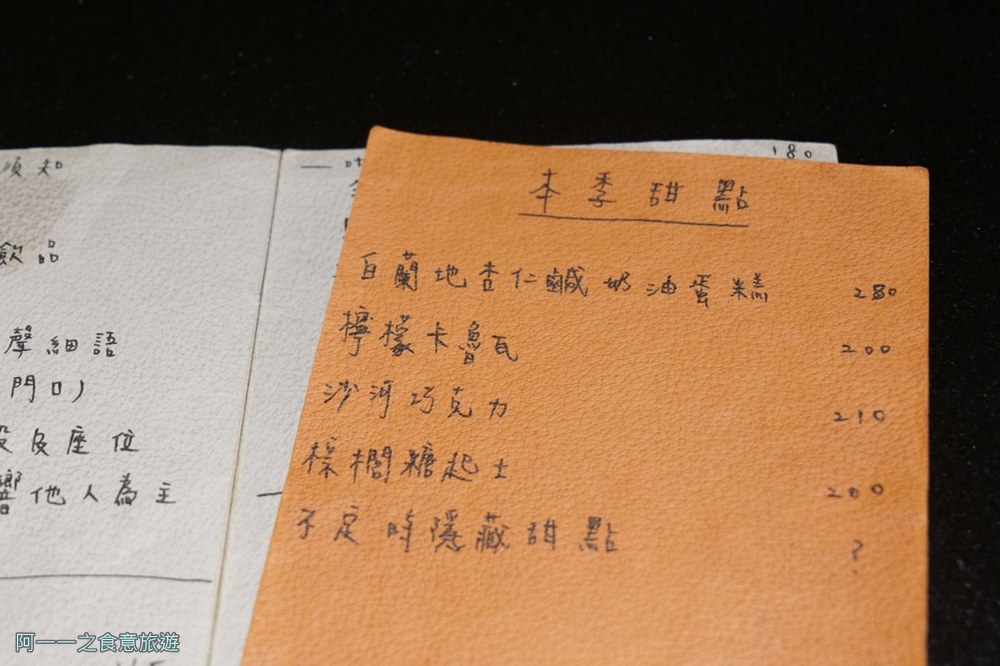 須知
飲品
聲細語
門口)
及座位
響他人為主
一
180
本季甜點
白蘭地杏仁鹹奶油蛋糕 280
檸檬卡魯瓦 200
沙河巧克力 210
棕櫚糖起士 200
不定時隱藏甜點 ?
阿一一之食意旅遊